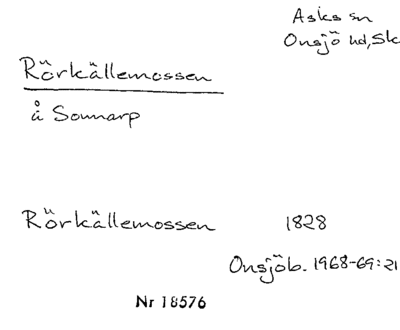 Asks sn
Onsjö hd, Sk
Rörkällemossen
å Sonnarp
Rörkällemossen 1828
Onsjöb. 1968-69:21
Nr 18576